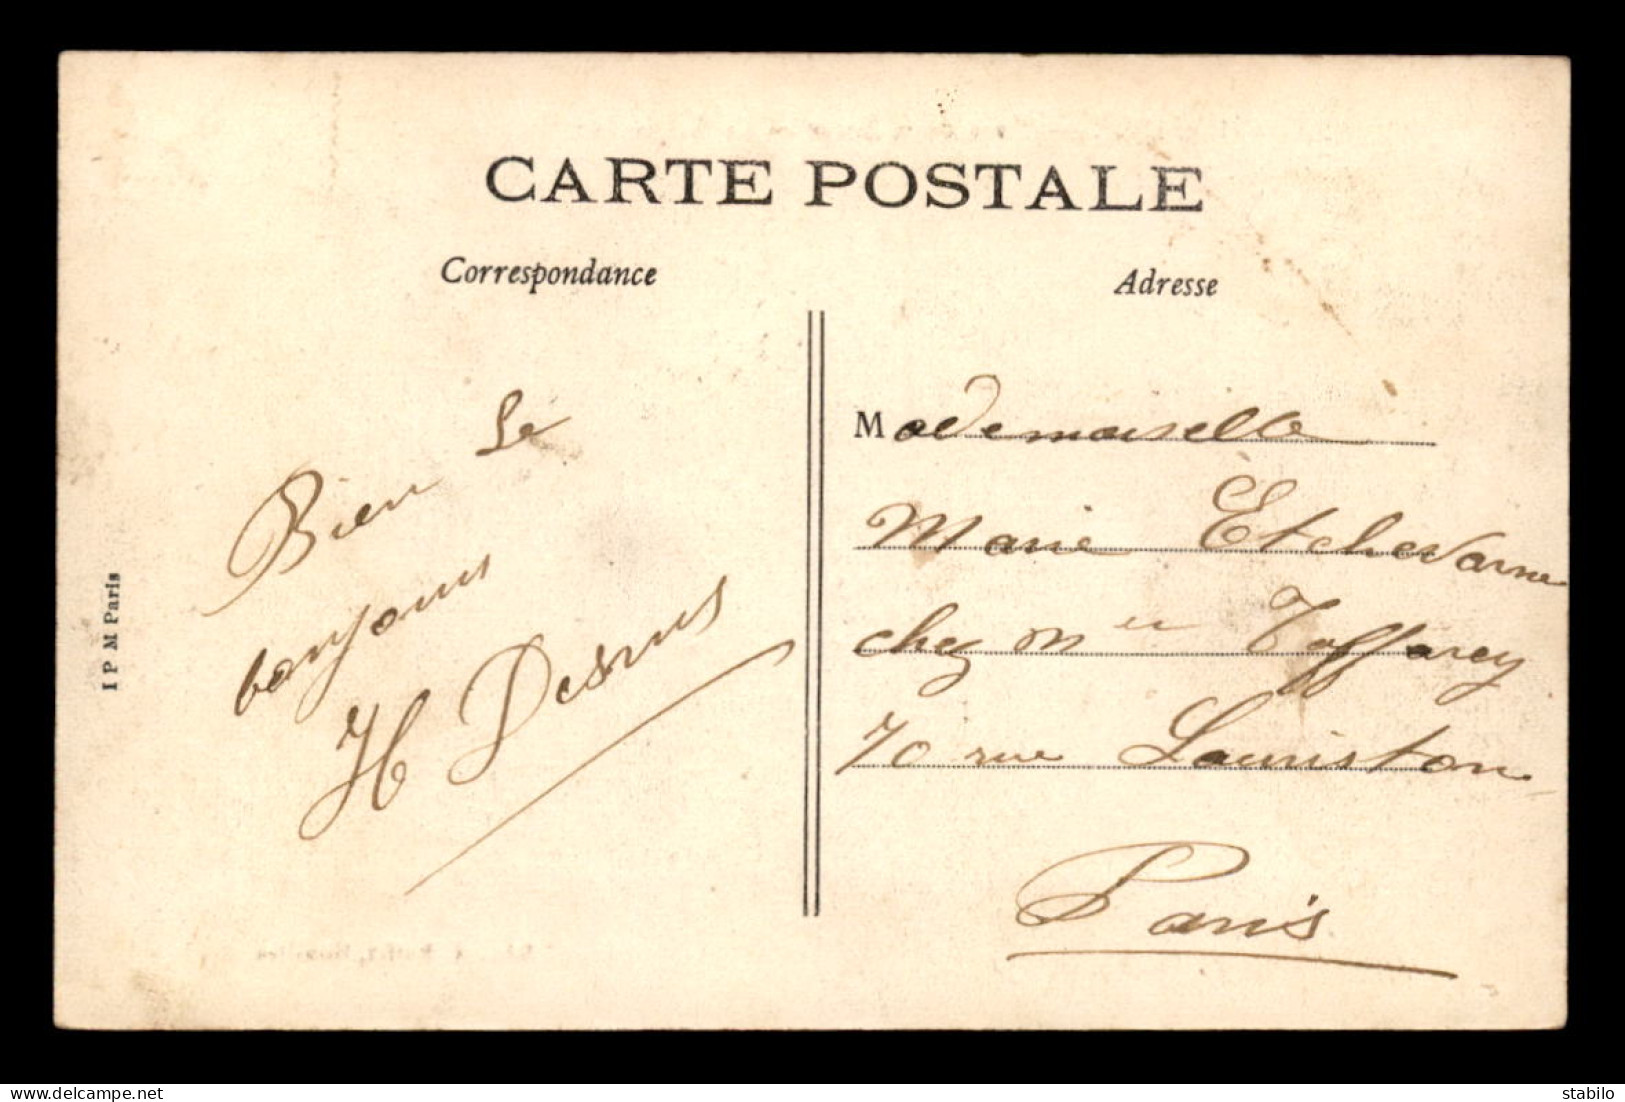 CARTE POSTALE
Correspondance
Adresse
Bien le
bonjour
H Desrus
Mademoiselle
Marie Etchevarne
chez Mer Toffarey
70 rue Lauriston
Paris
I P M Paris
stabilo